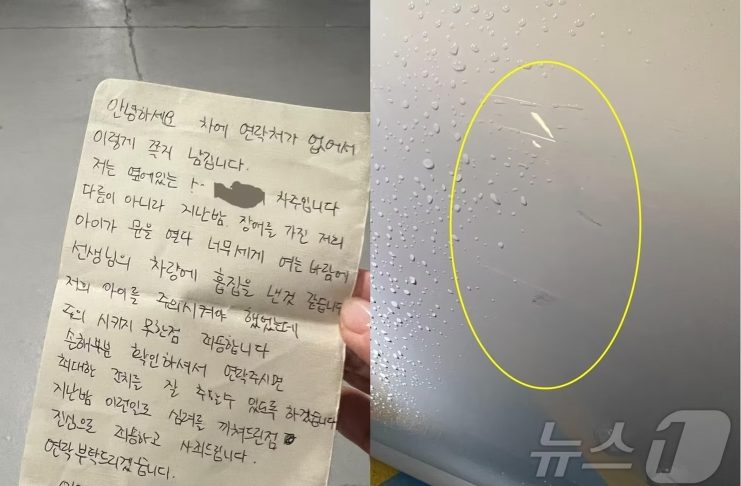 안녕하세요 차에 연락처가 없어서
이렇게 쪽지 남깁니다.
저는 옆에있는 차주입니다
다름이 아니라 지난밤 장애를 가진 저희
아이가 문을 열다 너무세게 여는 바람에
선생님의 차량에 흠집을 낸것 같습니다
저희 아이를 주의시켜야 했었는데
주의 시키지 못한점 죄송합니다
손해부분 확인하셔서 연락주시면
최대한 조치를 잘 취할수 있도록 하겠습니다
지난밤 이런일로 심려를 끼쳐드린점
진심으로 죄송하고 사죄드립니다.
연락부탁드리겠습니다.
뉴스1